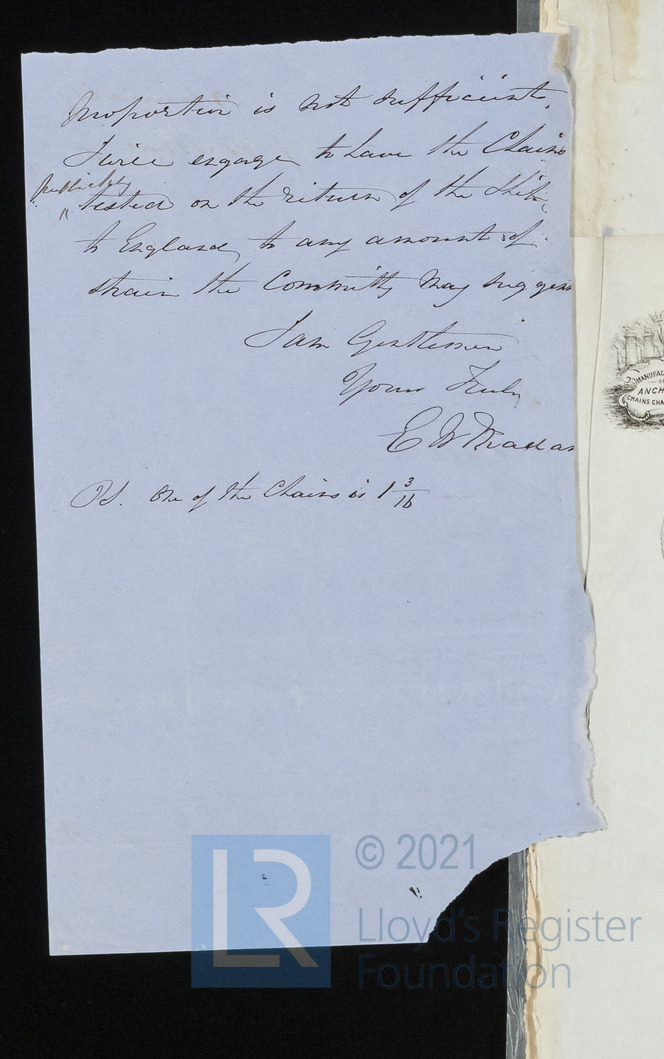 proportion is not sufficient.
I will engage to have the Chains
publickly
" tested on the return of the Ship
to England, to any amount of
strain the Committy May sugges
I am Gentlemen
Yours Truly
E W
PS. One of the Chains is 1 3/16
MANUFAC
OF
ANCH
CHAINS CHA
LR
© 2021
Lloyd's Register
Foundation